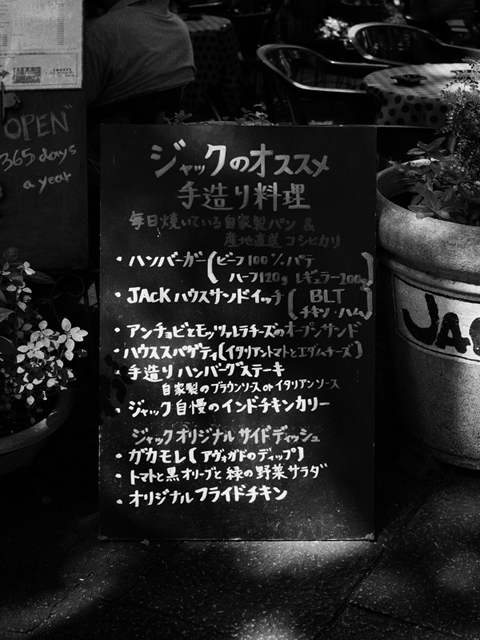 "OPEN"
365 days
a year
ジャックのオススメ
手造り料理
毎日焼いている自家製パン &
産地直送 コシヒカリ
・ハンバーガー(ビーフ100%パテ
ハーフ120g レギュラー200g)
・JACKハウスサンドイッチ [BLT
チキン・ハム]
・アンチョビとモッツァレラチーズのオープンサンド
・ハウススパゲティ[イタリアントマトとエダムチーズ]
・手造りハンバーグステーキ
自家製のブラウンソース or イタリアンソース
・ジャック自慢のインドチキンカリー
ジャックオリジナルサイドディッシュ
・ガカモレ[アヴォガドのディップ]
・トマトと黒オリーブと緑の野菜サラダ
・オリジナルフライドチキン
JAC